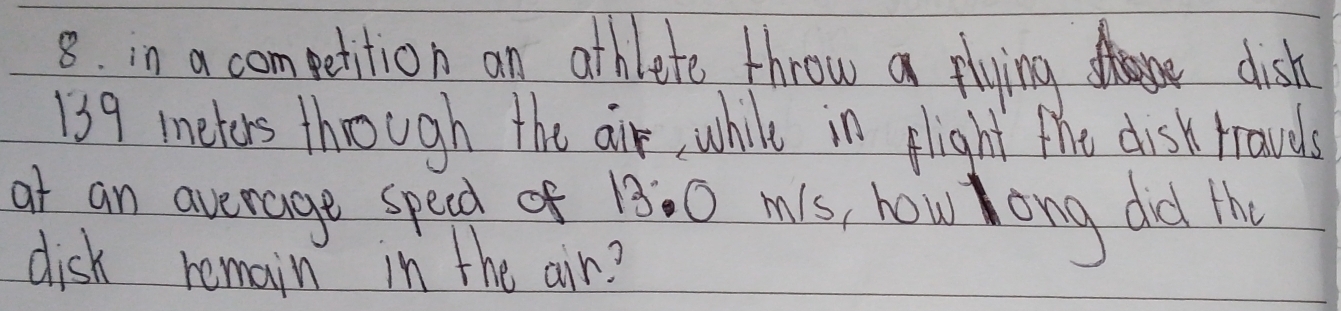 8. in a competition an athlete throw a flying disk
139 meters through the air, while in flight the disk travels
at an average speed of 13.0 m/s, how long did the
disk remain in the air?